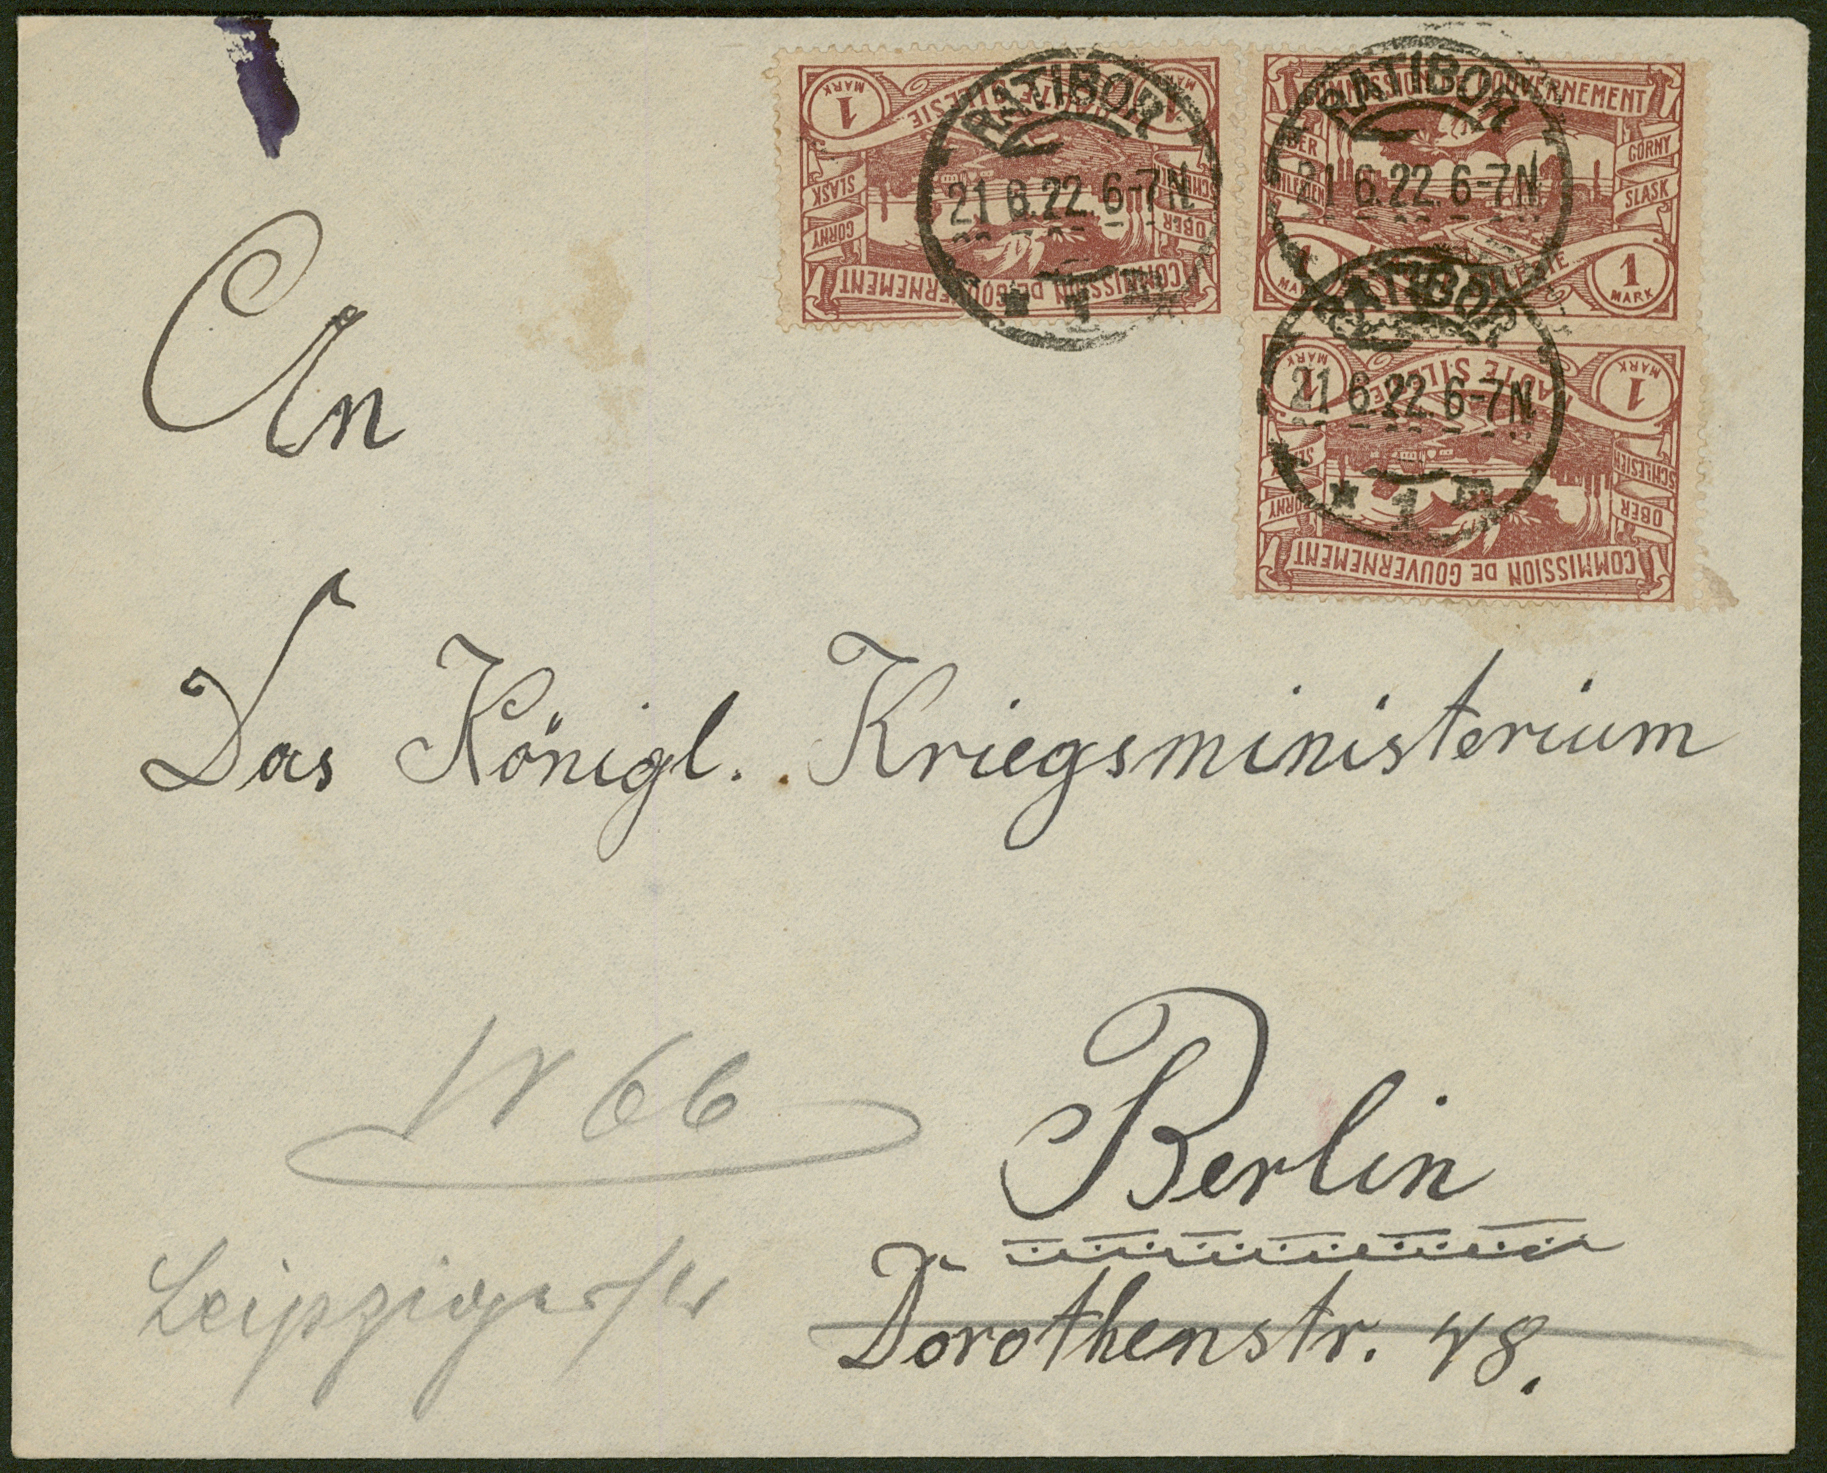 COMMISSION DE GOUVERNEMENT
HAUTE SILÉSIE
OBER SCHLESIEN
GÓRNY ŚLĄSK
1 MARK
1 MARK
RATIBOR
21.6.22.6-7N.
* 1
COMMISSION DE GOUVERNEMENT
OBER SCHLESIEN
GÓRNY ŚLĄSK
HAUTE SILÉSIE
1 MARK
1 MARK
RATIBOR
21.6.22.6-7N.
COMMISSION DE GOUVERNEMENT
OBER SCHLESIEN
GÓRNY ŚLĄSK
HAUTE SILÉSIE
1 MARK
1 MARK
RATIBOR
21.6.22.6-7N.
* 1
An
Das Königl. Kriegsministerium
W 66
Berlin
Leipzigerstr
Dorothenstr. 48.